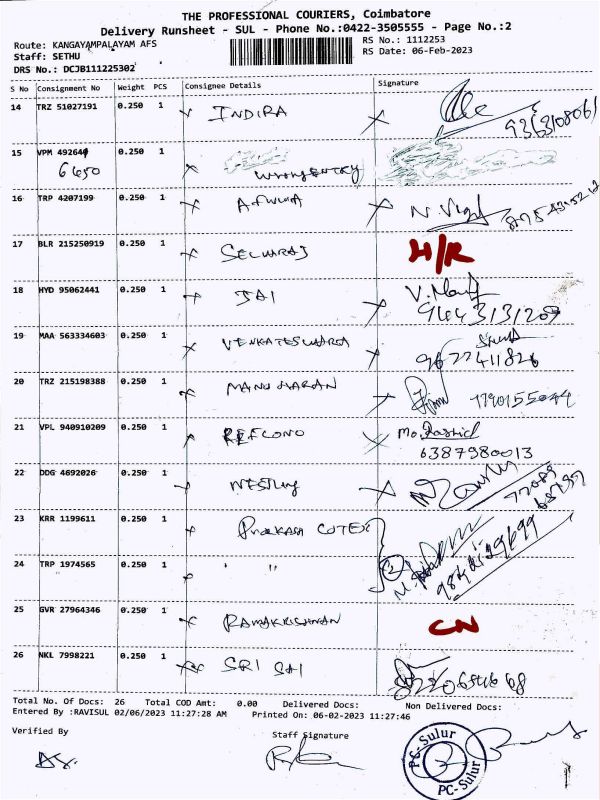 THE PROFESSIONAL COURIERS, Coimbatore
Delivery Runsheet - SUL - Phone No.:0422-3505555 - Page No.:2
Route: KANGAYAMPALAYAM AFS
RS No.: 1112253
Staff: SETHU
RS Date: 06-Feb-2023
DRS No.: DCJB111225302
S No Consignment No Weight PCS Consignee Details Signature
14 TRZ 51027191 0.250 1 INDIRA 9363108061
15 VPM 49264 0.250 1
6450
16 TRP 4207199 0.250 1
17 BLR 215250919 0.250 1 SELVARAJ H/R
18 HYD 95062441 0.250 1 JAI
9443131209
19 MAA 563334603 0.250 1 VENKATESWARA
9677411826
20 TRZ 215198388 0.250 1 MANOHARAN
21 VPL 940910209 0.250 1 Mo. Rashid
6387980013
22 DDG 4692026 0.250 1
23 KRR 1199611 0.250 1
24 TRP 1974565 0.250 1 " "
25 GVR 27964346 0.250 1 RAMAKRISHNAN CN
26 NKL 7998221 0.250 1 SRI SAI
Total No. Of Docs: 26 Total COD Amt: 0.00 Delivered Docs: Non Delivered Docs:
Entered By :RAVISUL 02/06/2023 11:27:28 AM Printed On: 06-02-2023 11:27:46
Verified By Staff Signature
PC-Sulur
PC-Sulur